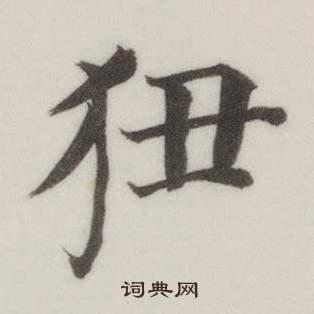 狃
词典网